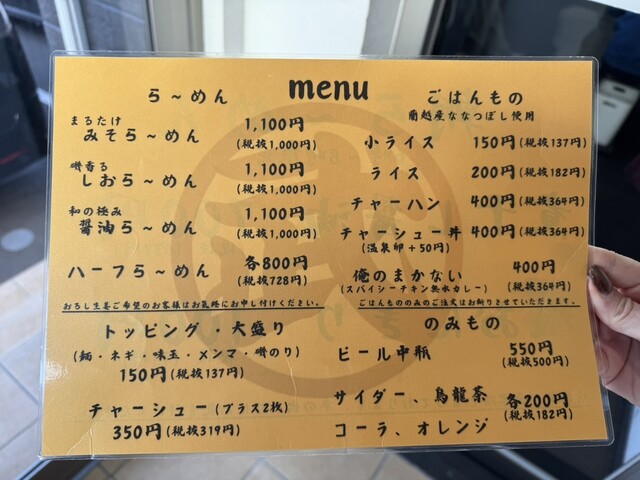 menu
ら～めん
まるたけ
みそら～めん 1,100円
(税抜1,000円)
噌香る
しおら～めん 1,100円
(税抜1,000円)
和の極み
醤油ら～めん 1,100円
(税抜1,000円)
ハーフら～めん 各800円
(税抜728円)
おろし生姜ご希望のお客様はお気軽にお申し付けください。
トッピング・大盛り
(麺・ネギ・味玉・メンマ・噌のり)
150円(税抜137円)
チャーシュー(プラス2枚)
350円(税抜319円)
ごはんもの
蘭越産ななつぼし使用
小ライス 150円(税抜137円)
ライス 200円(税抜182円)
チャーハン 400円(税抜364円)
チャーシュー丼 400円(税抜364円)
(温泉卵+50円)
俺のまかない 400円
(スパイシーチキン無水カレー) (税抜364円)
ごはんもののみのご注文はお断りさせていただきます。
のみもの
ビール中瓶 550円
(税抜500円)
サイダー、烏龍茶 各200円
コーラ、オレンジ (税抜182円)